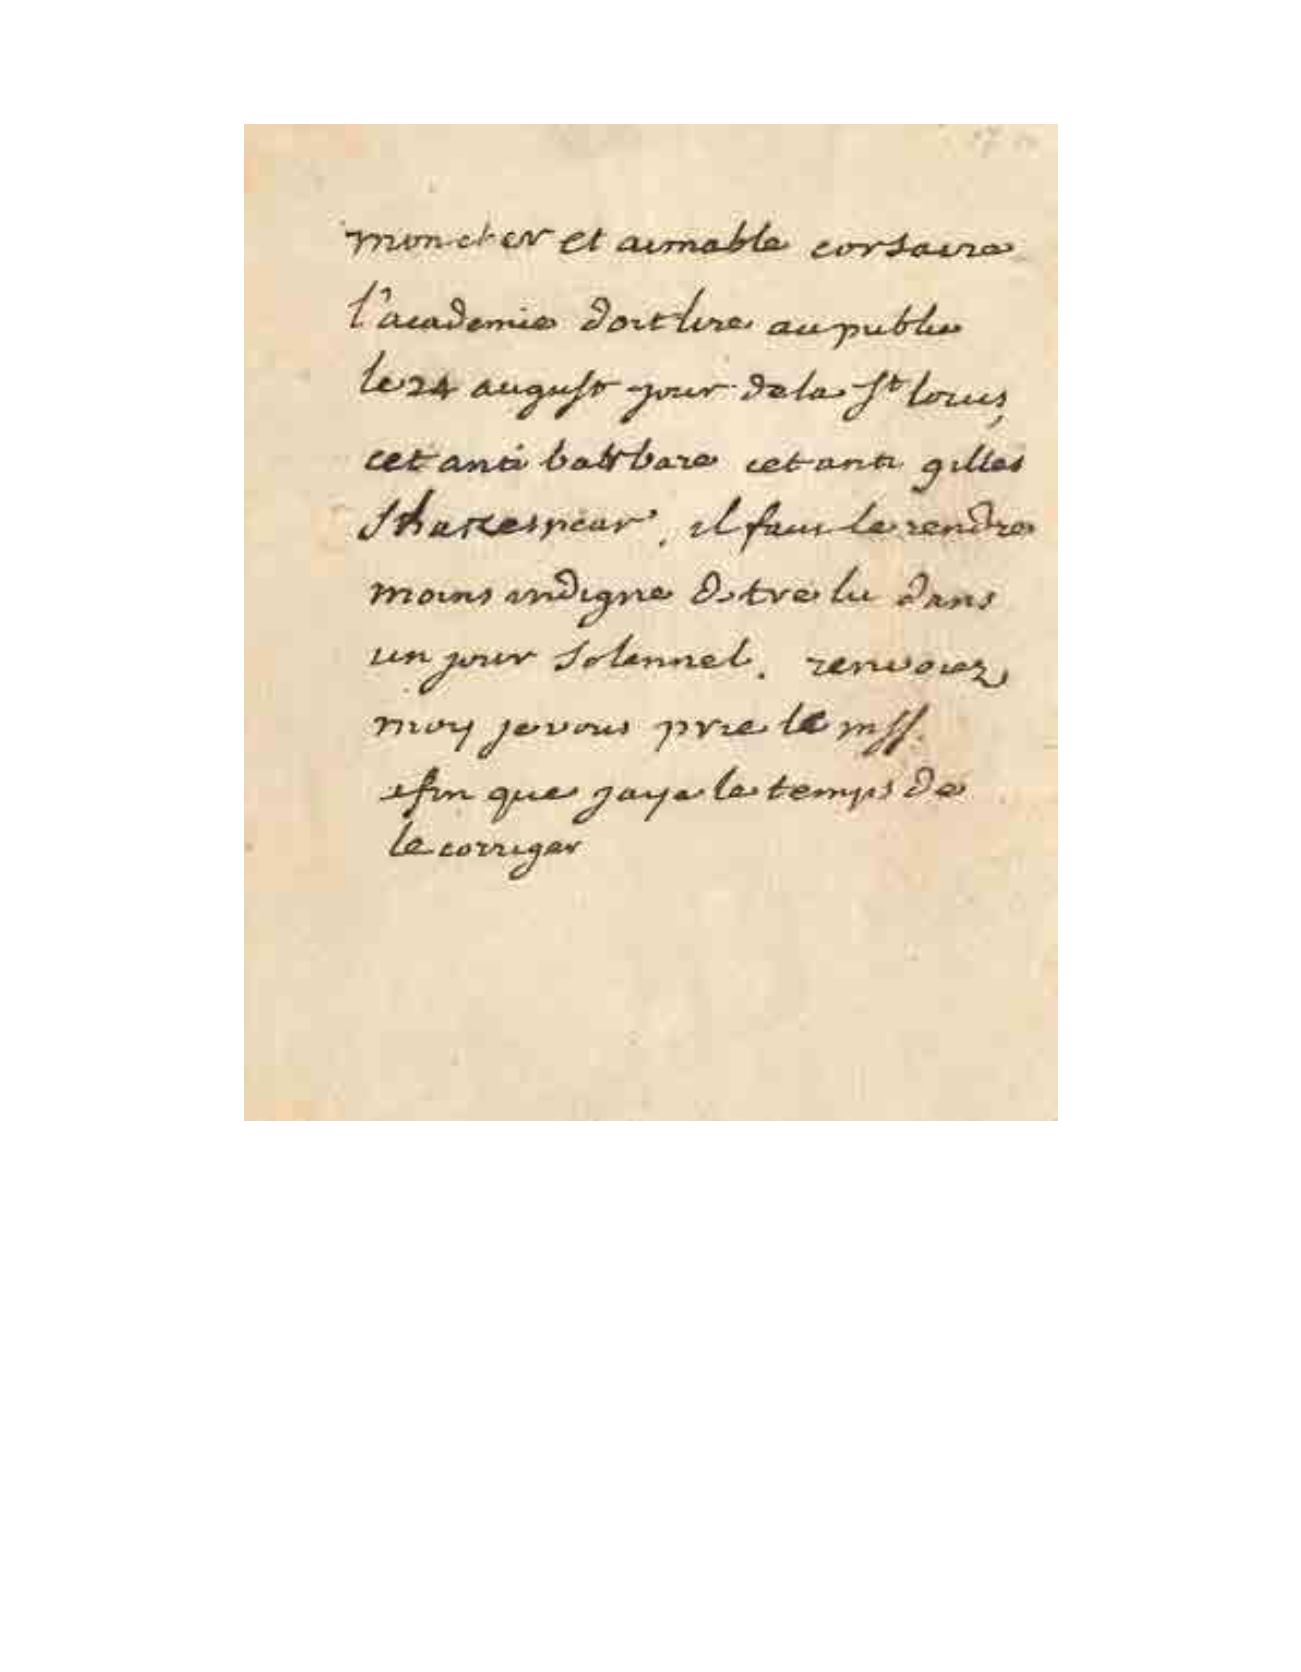 mon cher et aimable corsaire
l'academie doit lire au public
le 24 august jour de la St louis,
cet anti barbare cet anti gilles
Shakespear, il faut le rendre
moins indigne detre lu dans
un jour solennel. renvoiez
moy je vous prie le mss.
afin que jaye le temps de
le corriger